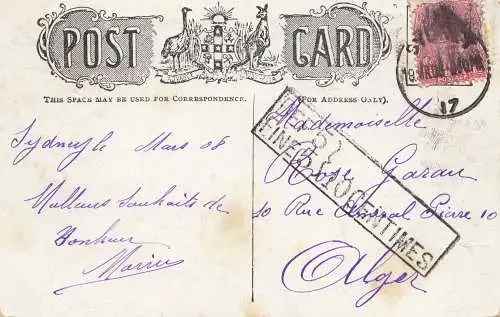 POST CARD
THIS SPACE MAY BE USED FOR CORRESPONDENCE.
(FOR ADDRESS ONLY).
17
Sydney le Mars 08
Meilleurs Souhaits de
Bonheur
Marius
Mademoiselle
Rose Garau
10 Rue Amiral Pierre 10
Alger
10 CENTIMES